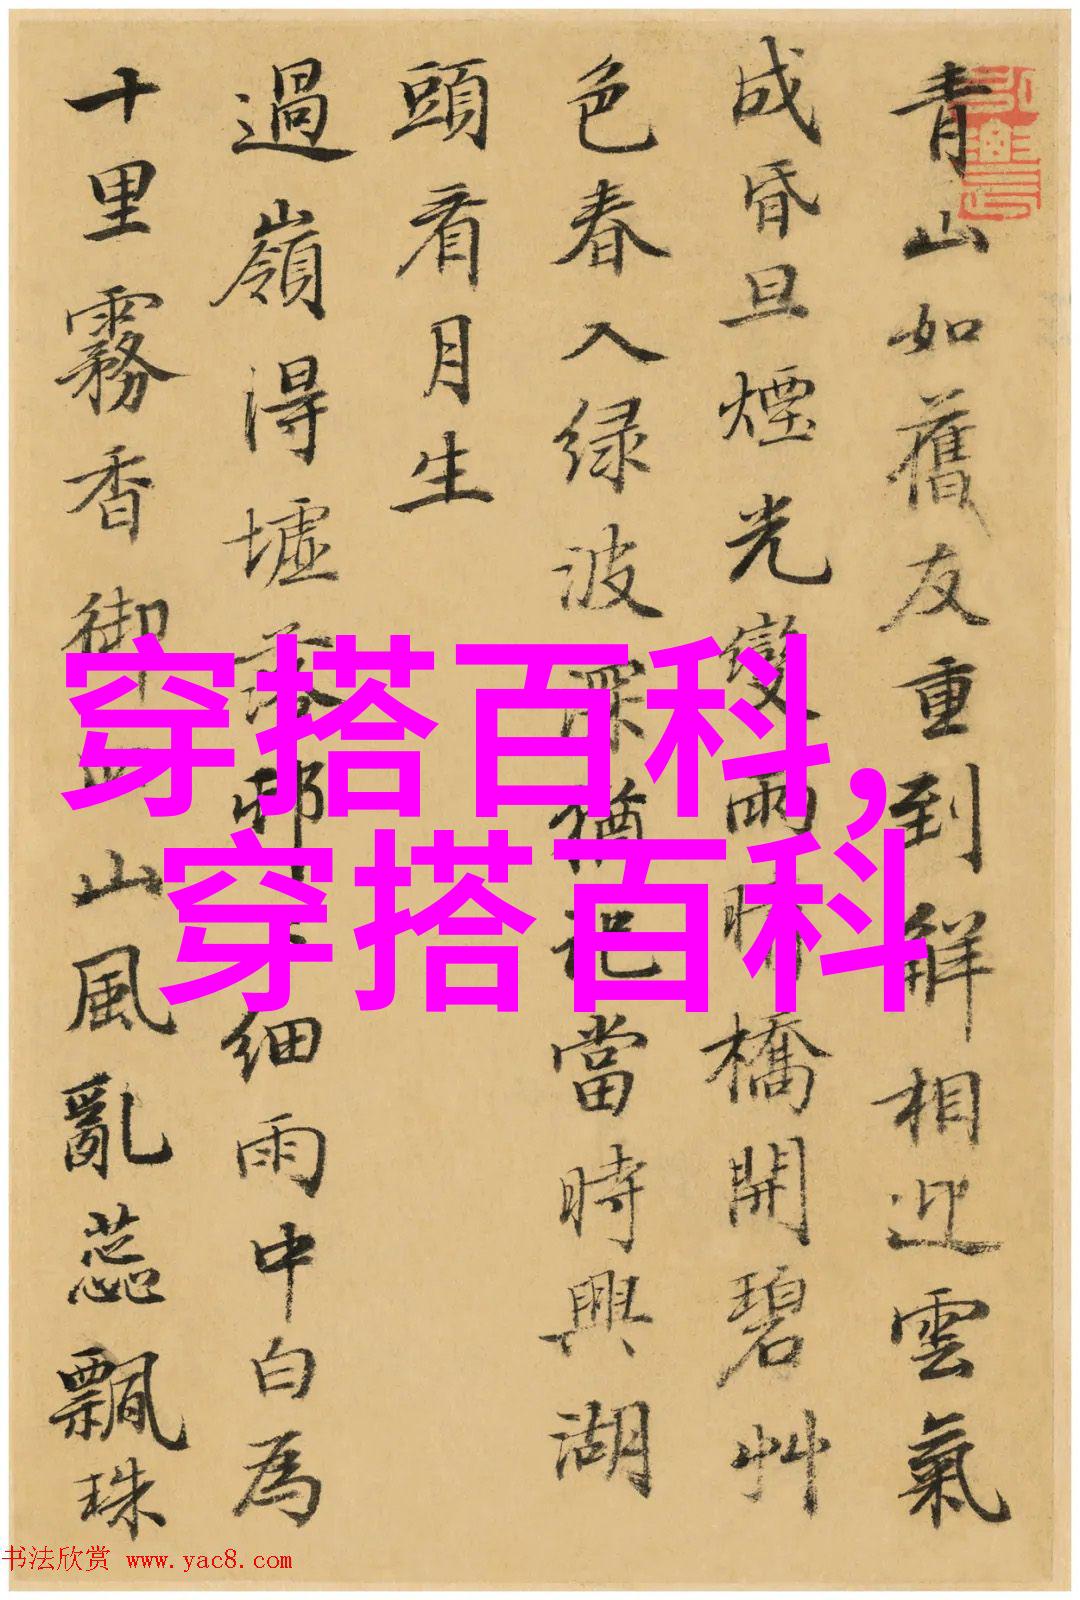 青山如舊友重到解相迎雲氣
成昏旦煙光變雨晴橋開碧艸
色春入绿波深猶記當時興湖
頭看月生
過嶺得墟落邨細雨中白為
十里霧香御山風亂蕊飄珠
穿搭百科,
穿搭百科
书法欣赏 www.yac8.com